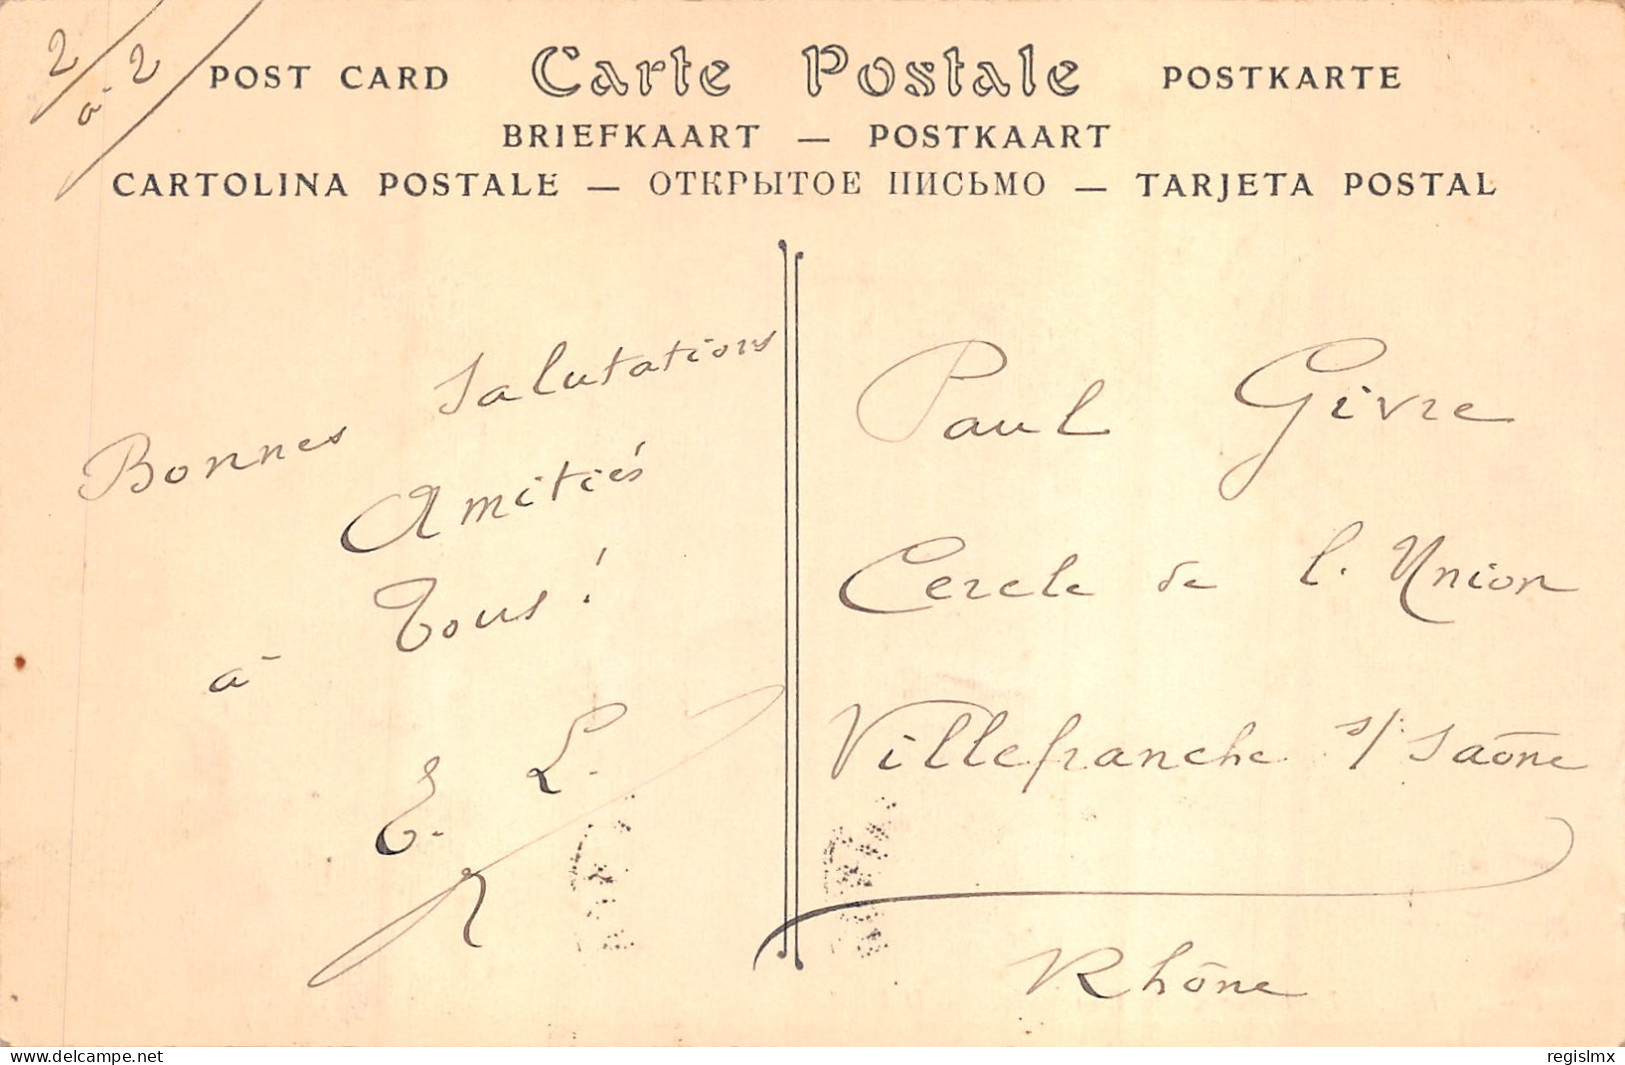 2/ à 2/
POST CARD Carte Postale POSTKARTE
BRIEFKAART — POSTKAART
CARTOLINA POSTALE — ОТКРЫТОЕ ПИСЬМО — TARJETA POSTAL
Bonnes Salutations
Amitiés
à Tous!
E. L.
Paul Givre
Cercle de l. Union
Villefranche s/ Saône
Rhône
www.delcampe.net
regislmx